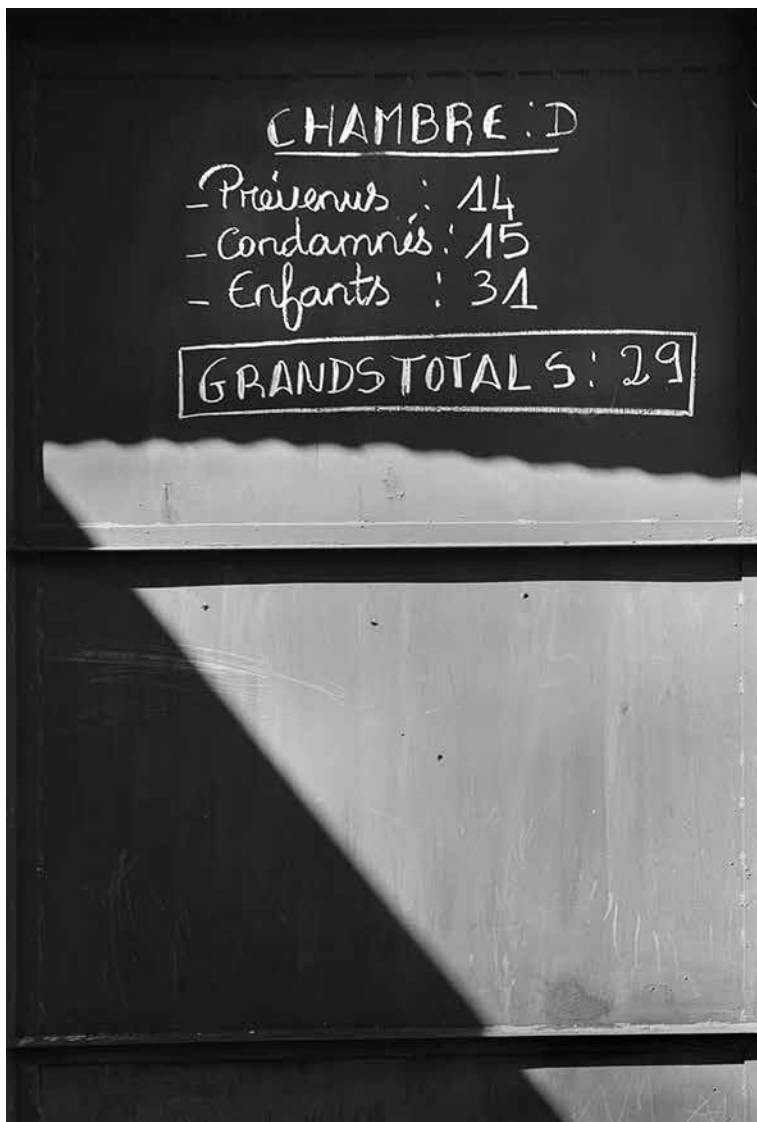 CHAMBRE : D
- Prévenus : 14
- Condamnés : 15
- Enfants : 31
GRANDS TOTALS : 29